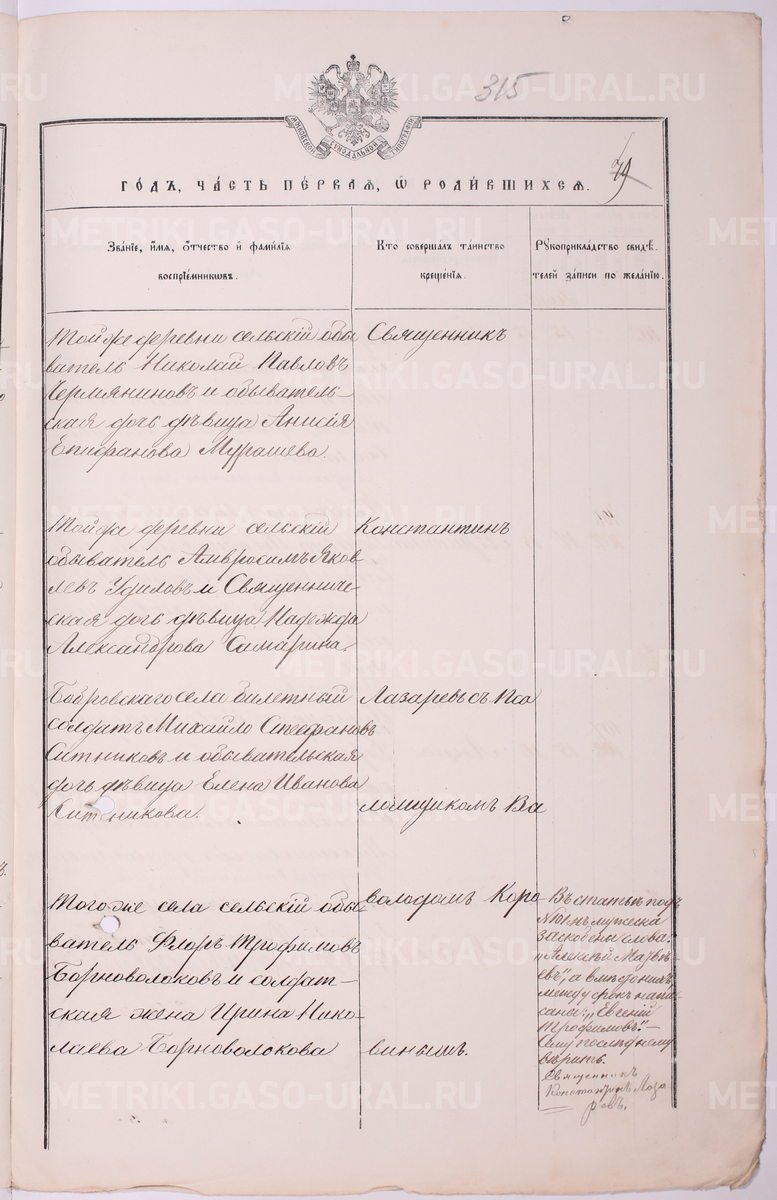 315
МОСКОВСКОЙ СѴНОДАЛЬНОЙ ТИПОГРАФІИ
ГОДЪ, ЧАСТЬ ПЕРВАЯ, Ѡ РОДИВШИХСЯ.
Званіе, имя, отчество и фамилія
воспріемниковъ.
Кто совершалъ таинство
крещенія.
Рукоприкладство свидѣ-
телей записи по желанію.
Той же деревни сельскій обы
ватель Николай Павловъ
Чермяниновъ и обыватель-
ская дочь дѣвица Анисія
Епифанова Мурашева.
Священникъ
Той же деревни сельскій
обыватель Амвросимъ Яков
левъ Уфиловъ и Священниче-
ская дочь дѣвица Надежда
Александрова Самарина.
Константинъ
Бобровскаго села билетный
солдатъ Михайло Стефановъ
Ситниковъ и обывательская
дочь дѣвица Елена Иванова
Ситникова.
Лазаревъ съ Пса
ломщикомъ Ва
Того же села сельскій обы
ватель Флоръ Трофимовъ
Борноволоковъ и солдат-
ская жена Ирина Нико-
лаева Борноволокова
володомъ Коро
винымъ.
Въ статьѣ подъ
№ мужеска
заскоблены слова:
„Алексѣй Матвѣ
евъ“, а вмѣсто ихъ
между строкъ напи
сано: „Евгеній
Трофимовъ“.—
Сему послѣднему
вѣрить.
Священникъ
Константинъ Лаза
ревъ.
METRIKI.GASO-URAL.RU